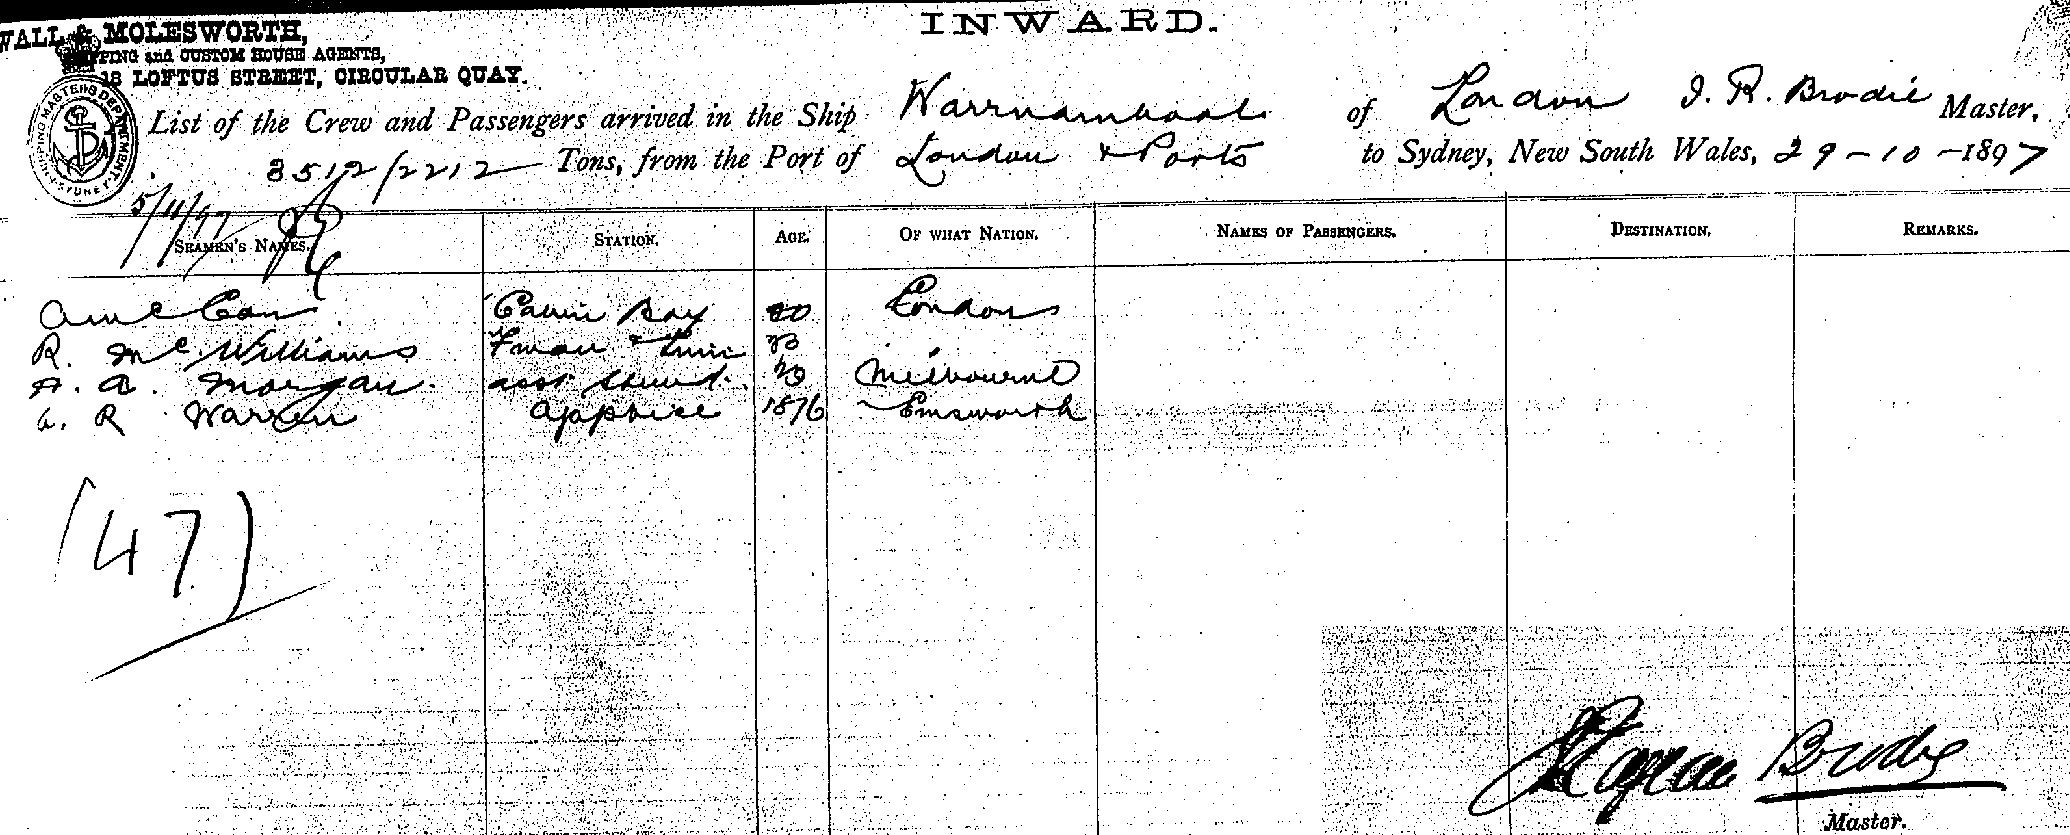 WALL & MOLESWORTH,
SHIPPING and CUSTOM HOUSE AGENTS,
18 LOFTUS STREET, CIRCULAR QUAY.
INWARD.
List of the Crew and Passengers arrived in the Ship Warrnambool of London J. R. Brodie Master,
3512/2212 Tons, from the Port of London & Ports to Sydney, New South Wales, 29-10-1897
5/11/97
SEAMEN'S NAMES. STATION. AGE. OF WHAT NATION. NAMES OF PASSENGERS. DESTINATION. REMARKS.
Cabin Boy 20 London
R. McWilliams Fman & Trim
A. A. Morgan asst Melbourne
R Warren appice 1876 Emsworth
(47)
Brodie
Master.